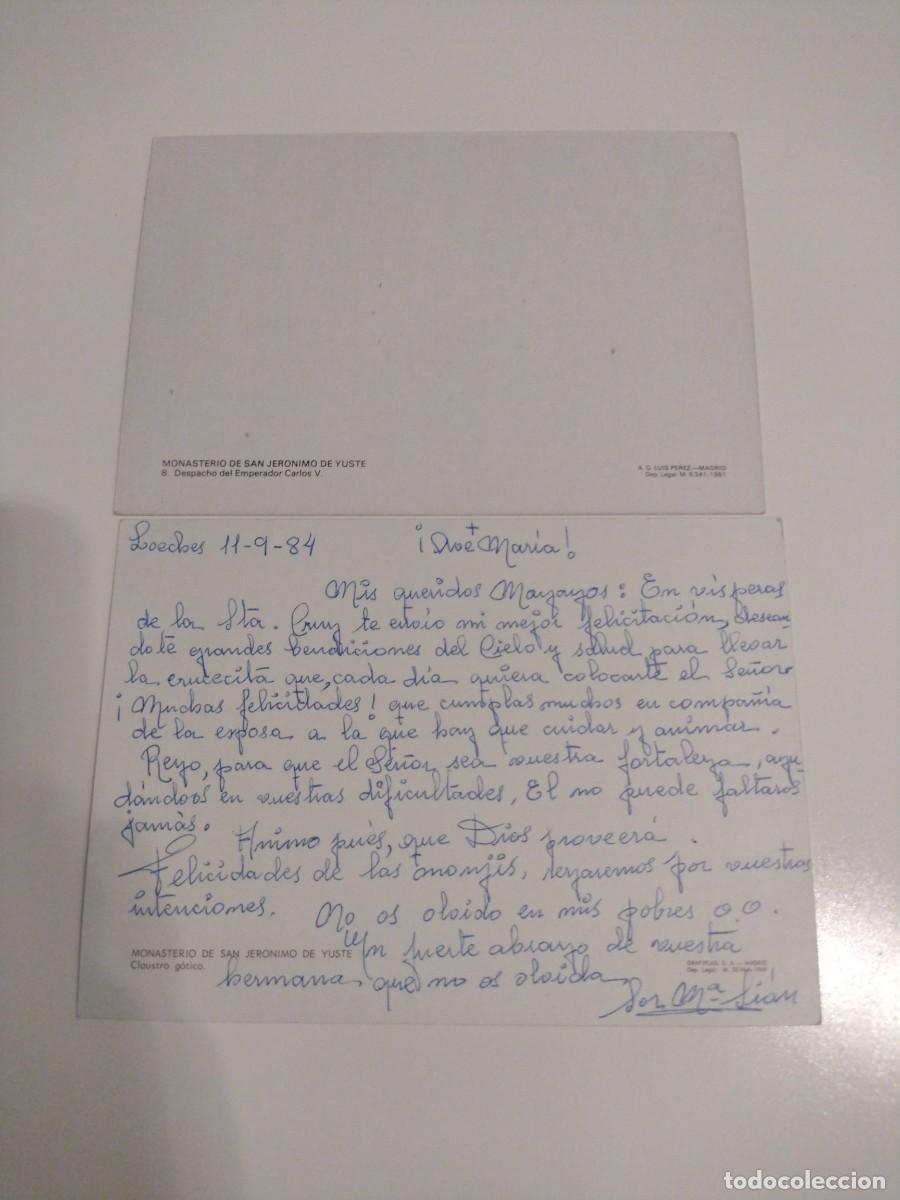 MONASTERIO DE SAN JERONIMO DE YUSTE
8. Despacho del Emperador Carlos V.
A. G. LUIS PEREZ.—MADRID
Dep. Legal: M. 5.341-1981
Loeches 11-9-84
¡Ave María!
Mis queridos Mayayos: En vísperas
de la Sta. Cruz te envío mi mejor felicitación, desean-
dote grandes bendiciones del Cielo y salud para llevar
la crucecita que, cada día quiera colocarte el Señor
¡Muchas felicidades! que cumplas muchos en compañía
de la esposa a la que hay que cuidar y animar.
Rezo, para que el Señor sea vuestra fortaleza, ayu-
dándoos en vuestras dificultades, El no puede faltaros
jamás.
Animo pués, que Dios proveerá.
Felicidades de las monjis, rezaremos por vuestras
intenciones. No os olvido en mis pobres o.o.
Un fuerte abrazo de vuestra
MONASTERIO DE SAN JERONIMO DE YUSTE
Claustro gótico.
MADRID
Dep. Legal: M.
hermana que no os olvida
Sor Mª
todocoleccion